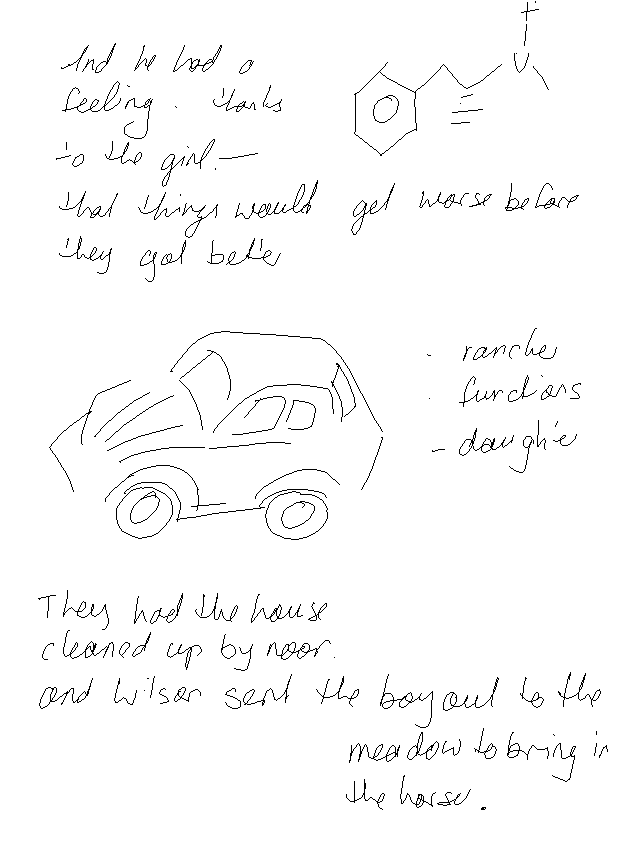 And he had a
feeling. thanks
to the girl.—
that things would get worse before
they got better
. rancher
. functions
- daughter
They had the house
cleaned up by noon.
and Wilson sent the boy out to the
meadow to bring in
the horse.